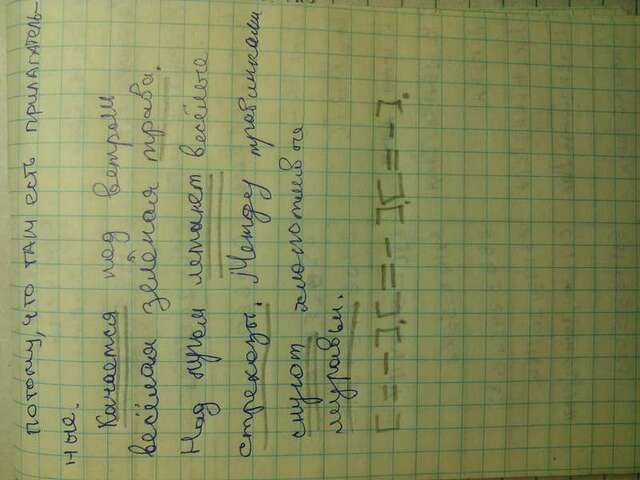 потому, что там есть прилагатель-
ные.
Качается под ветром
весёлая зелёная трава.
Над лугом летают весёлые
стрекозы. Между травинками
снуют хлопотливые
муравьи.
[=-].[=-].[=-].